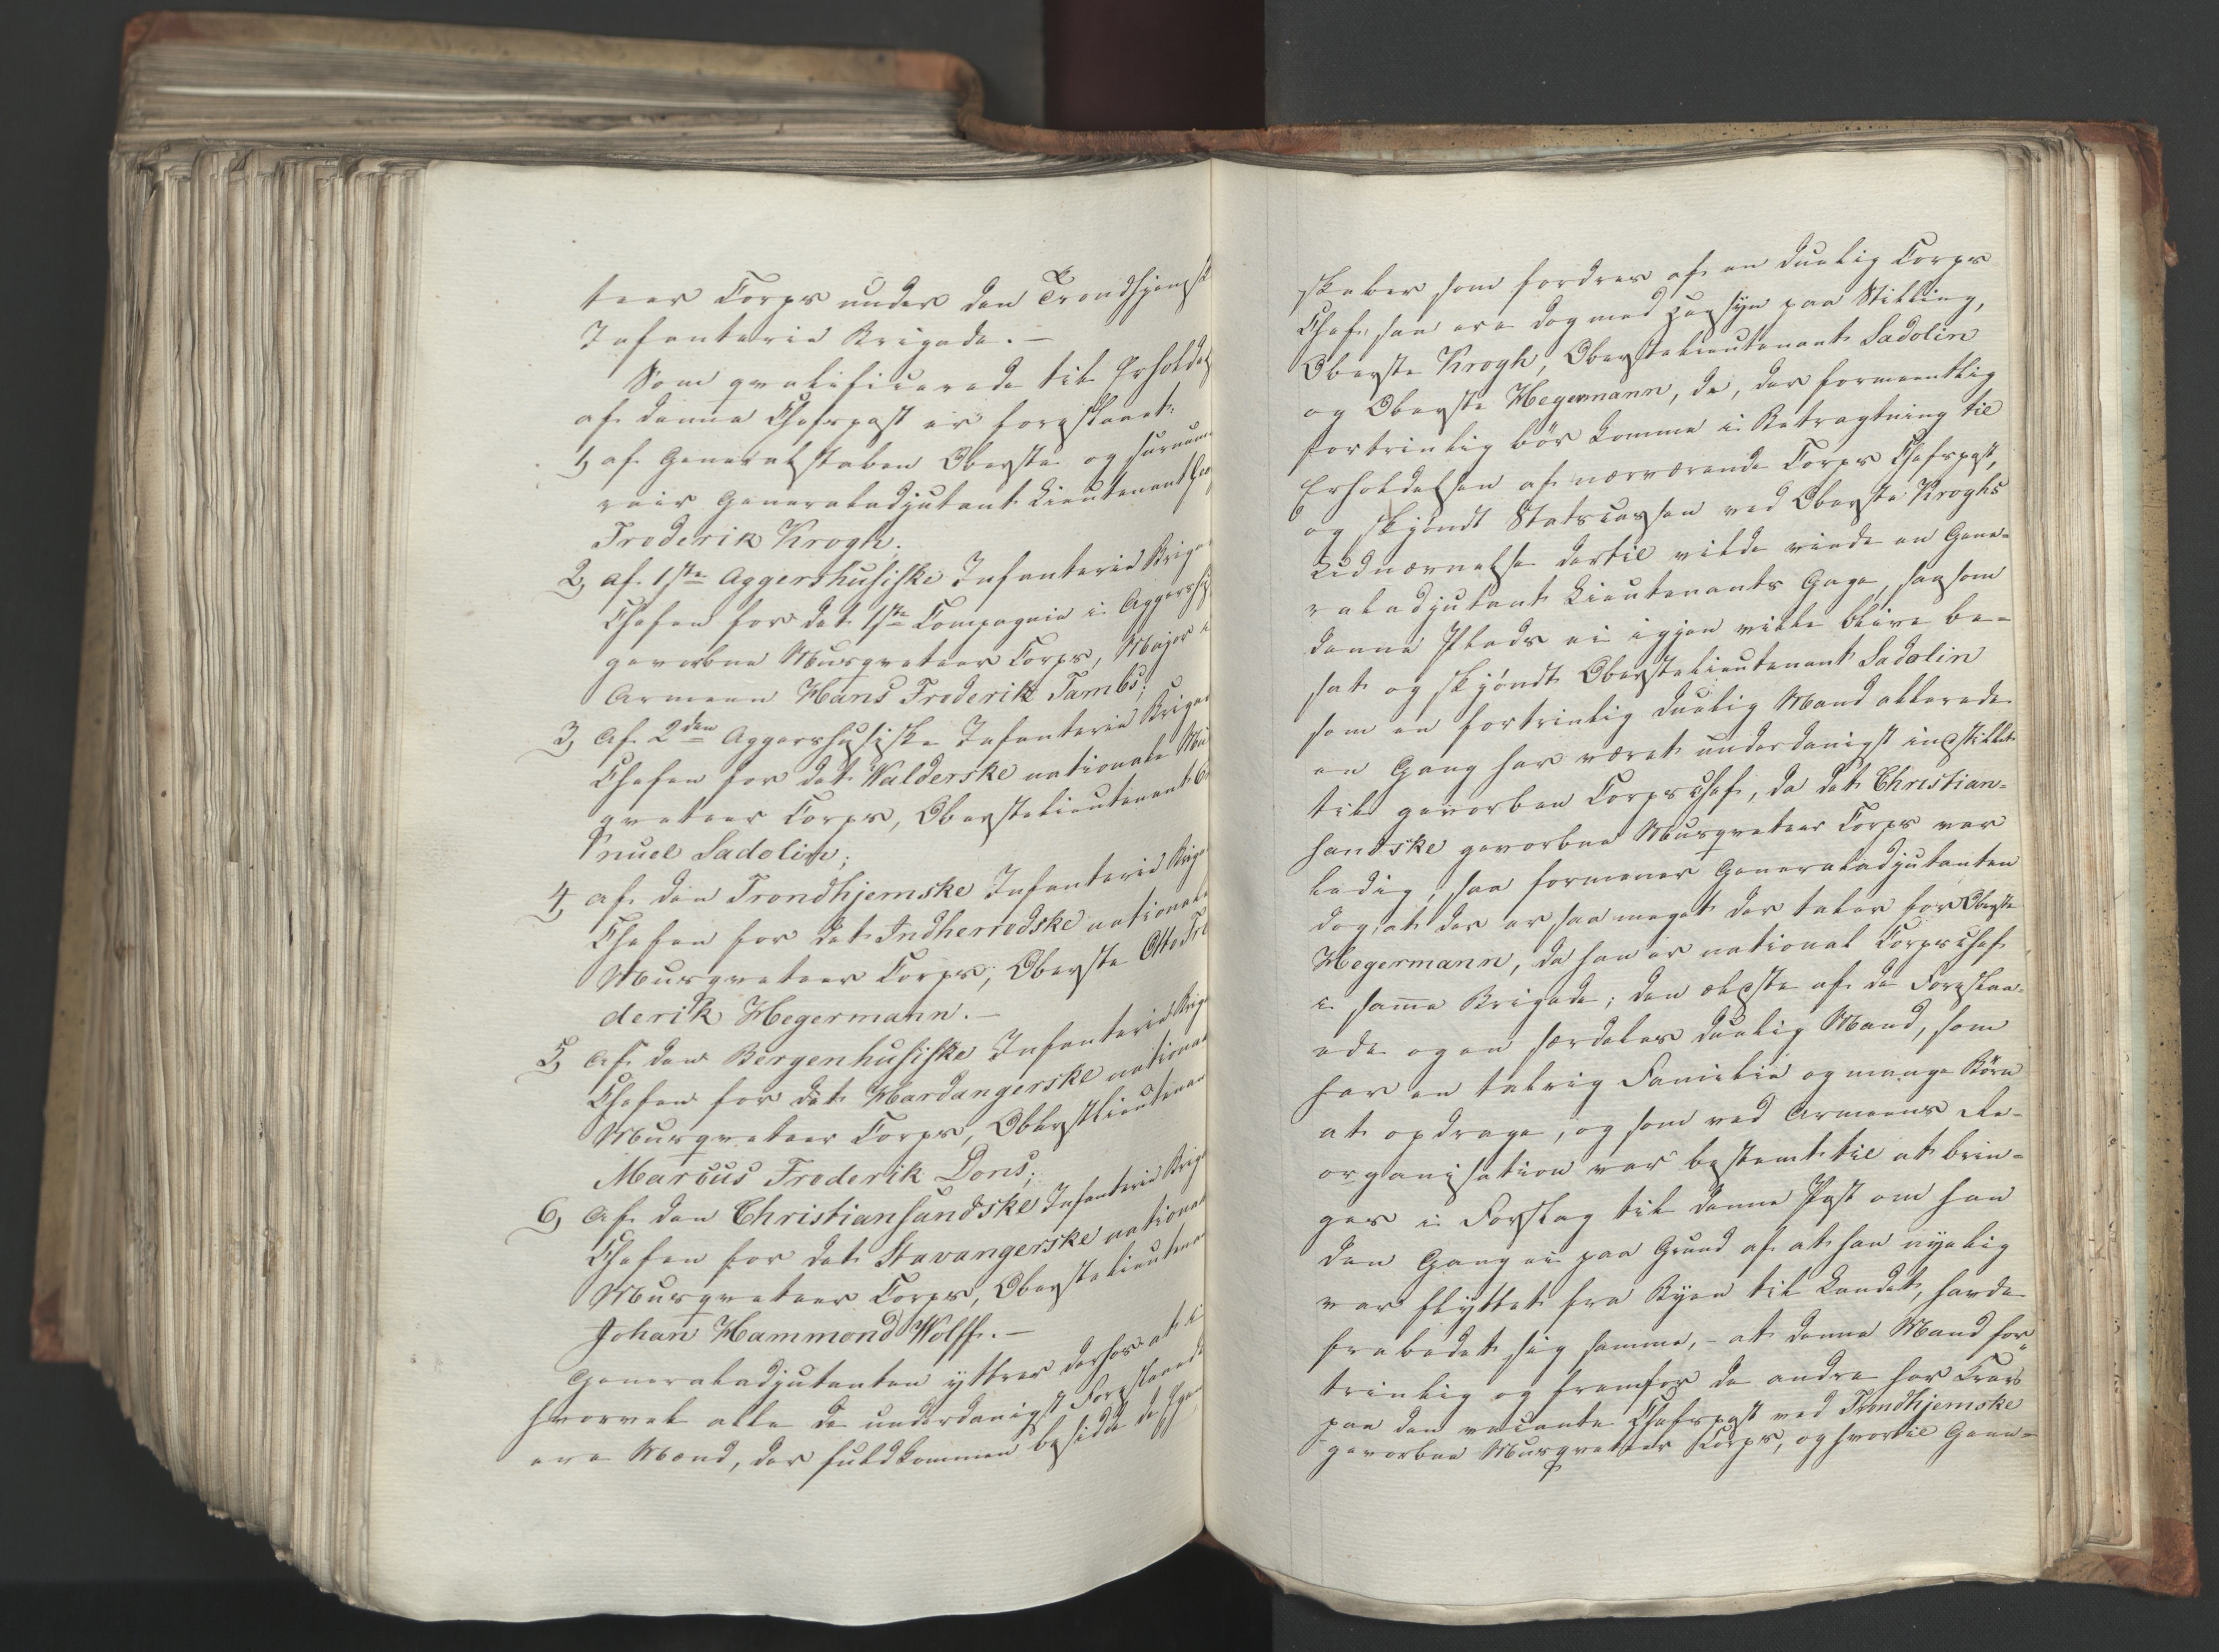 teer Corps under den Trondhjemsk
Infanterie Brigade. —
Som qvalificerede til Erholdel
af denne Chefspost er foreslaaet:
1, af Generalstaben Oberste og surnume
rair Generaladjutant Lieutenant
Frederik Krogh.
2, af 1ste Aggershusiske Infanterie Briga
Chefen for det 1ste Compagnie i Aggersh
gevorbne Musqveteer Corps, Major i
Armeen Hans Frederik Tambs;
3, Af 2den Aggershusiske Infanterie Briga
Chefen for det Walderske nationale Mu
qveteer Corps, Oberstelieutenant
nuel Sadolin;
4, Af den Trondhjemske Infanterie Briga
Chefen for det Indherredske nationale
Musqveteer Corps, Oberste Otto Fre
derik Hegermann. —
5, Af den Bergenhusiske Infanterie Brig
Chefen for det Hardangerske national
Musqveteer Corps, Oberstlieutenan
Marcus Frederik Dons;
6, Af den Christiansandske Infanterie Brig
Chefen for det Stavangerske national
Musqveteer Corps, Oberstelieutena
Johan Hammond Wolff. —
Generaladjutanten yttrer derhos at i
hvorvel alle de underdanigst Foreslaaede
ere Mænd, der fuldkommen besidde de Egen
skaber som fordres af en duelig Corps
Chef, saa ere dog med Hensyn paa Stilling,
Oberste Krogh, Oberstelieutenant Sadolin
og Oberste Hegermann, de, der formeentlig
fortrinlig bör komme i Betragtning til
Erholdelsen af nærværende Corps Chefspost,
og skjöndt Statscassen ved Oberste Kroghs
Udnævnelse dertil vilde vinde en Gene-
raladjutant Lieutenants Gage, saasom
denne Plads ei igjen ville blive be-
sat og skjöndt Oberstelieutenant Sadolin
som en fortrinlig duelig Mand allerede
en Gang har været underdanigst indstillet
til gevorben Corpschef, da det Christian-
sandske gevorbne Musqveteer Corps var
ledig, saa formener Generaladjutanten
dog, at der er saa meget der taler for Oberste
Hegermann, da han er national Corpschef
i samme Brigade; den ældste af de Foreslaa-
ede og en særdeles duelig Mand, som
har en talrig Familie og mange Börn
at opdrage, og som ved Armeens Re-
organisation var bestemt til at brin-
ges i Forslag til denne Post om han
den Gang ei paa Grund af at han nyelig
var flyttet fra Byen til Landet, havde
frabedet sig samme, – at denne Mand for-
trinlig og fremfor de andre har Krav
paa den vacante Chefspost ved Trondhjemske
gevorbne Musqveteer Corps, og hvortil Gene-